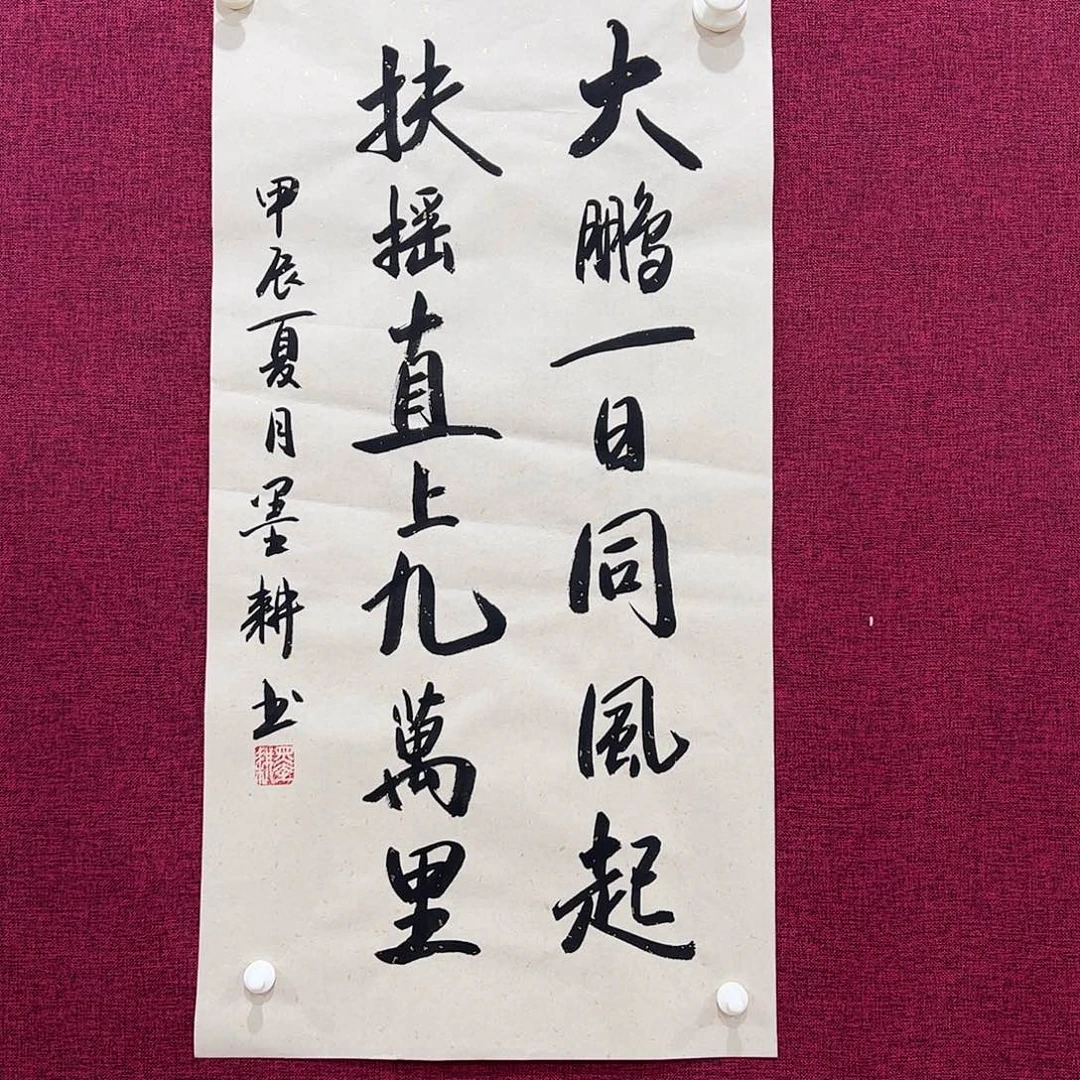 大鹏一日同風起
扶摇直上九萬里
甲辰夏月墨耕书
墨耕